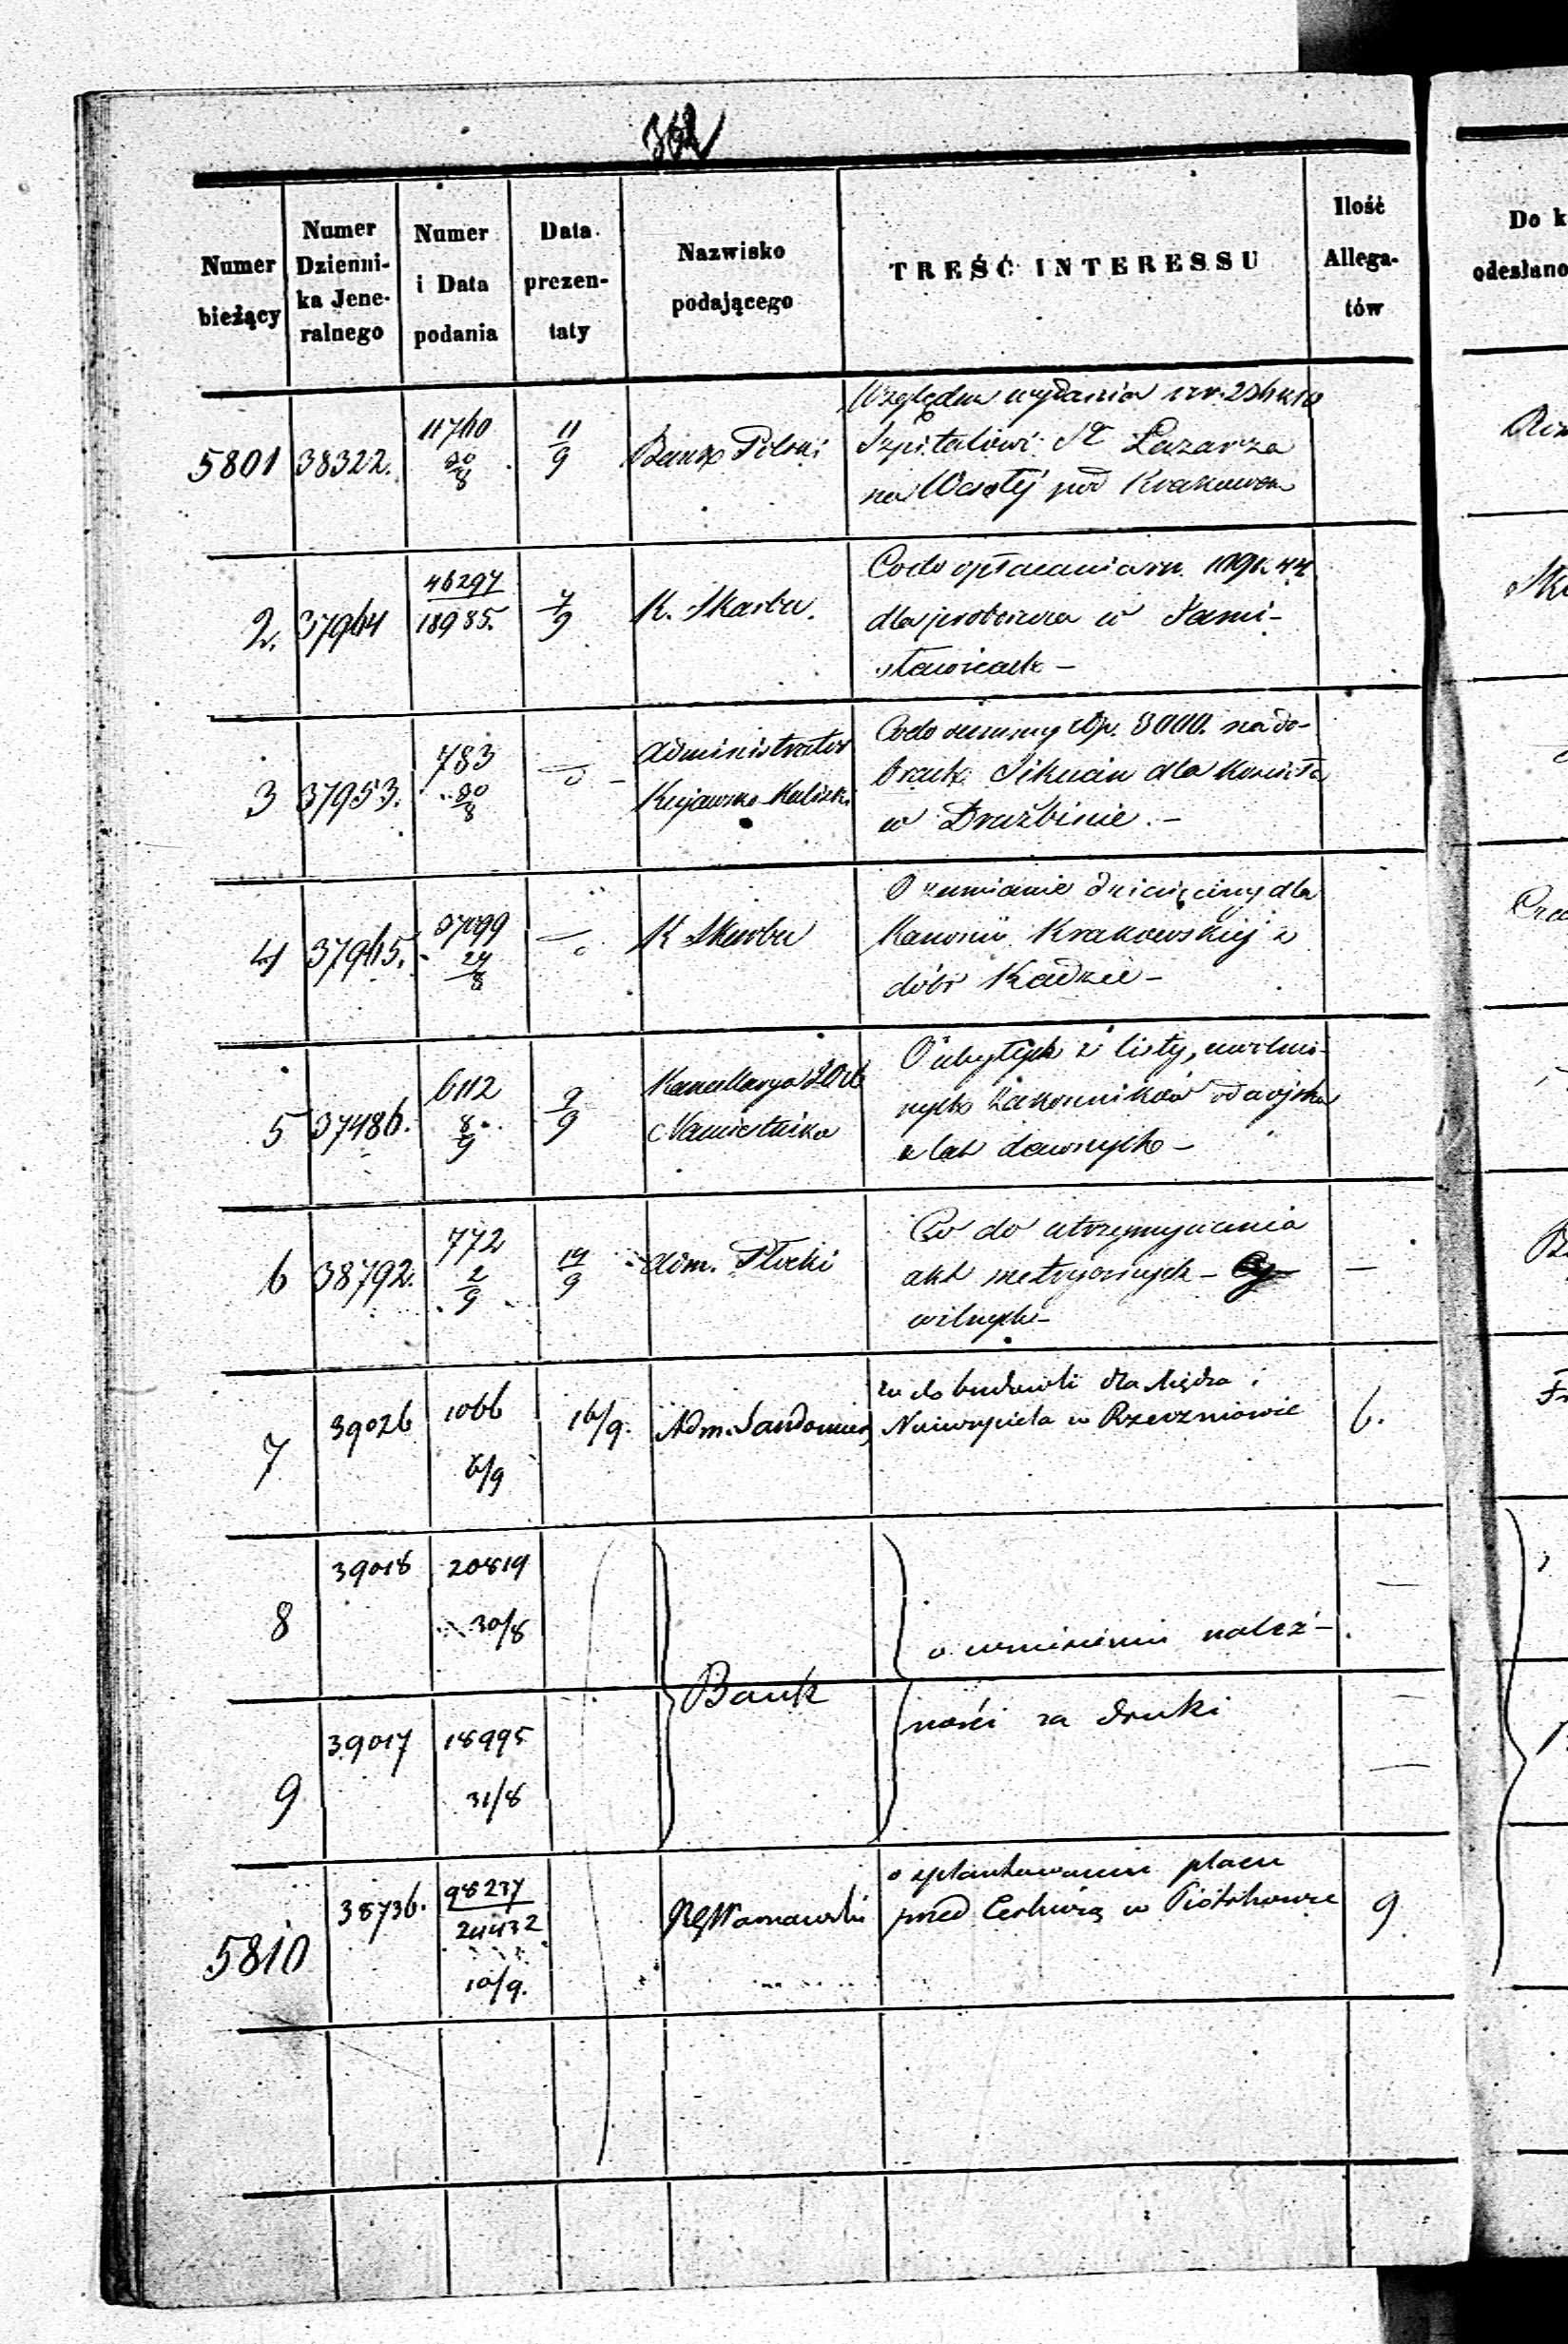 362
Numer bieżący
Numer Dzienni- ka Jene- ralnego
Numer i Data podania
Data prezen- taty
Nazwisko podającego
TREŚĆ INTERESSU
Ilość Allega- tów
Do k
odesłano
5801 38322. 11760 30/8 11/9 Bank Polski
Względem wydania
Szpitalowi St Łazarza
na Wesołéj pod Krakowem
2. 37964 46297 18985. 7/9 K. Skarbu.
Co do opłacania
dla proboszcza w
3 37953. 783 30/8 Administrator
Kujawsko Kaliski
Co do summy Złp. 3000. na do-
brach dla kościoła
w Drużbinie. –
4 37965. 37099 27/8 K Skarbu
O zamianie dziesięciny dla
Kanonii Krakowskiéj z
dóbr Kadzie –
5 37486. 6112 8/9 9/9 Kancellarya
Namiestnika
O ubyłych z listy, uwolnio-
nych Zakonników od wojska
z lat dawnych –
6 38792. 772 2/9 14/9 Adm. Płocki
Co do utrzymywania
akt metrycznych – Cy-
wilnych –
–
7 39026 1066 6/9 16/9. Adm. Sandomier
Co do budowli dla księdza i
w Rzeczniowie
6.
8 39018 20819 30/8
9 39017 18995 31/8
Bank
o wniesieniu należ–
ności za druki
5810 38736. 98237 24432 10/9. Rz Warszawski
o splantowaniu placu
przed Cerkwią w Piotrkowie
9